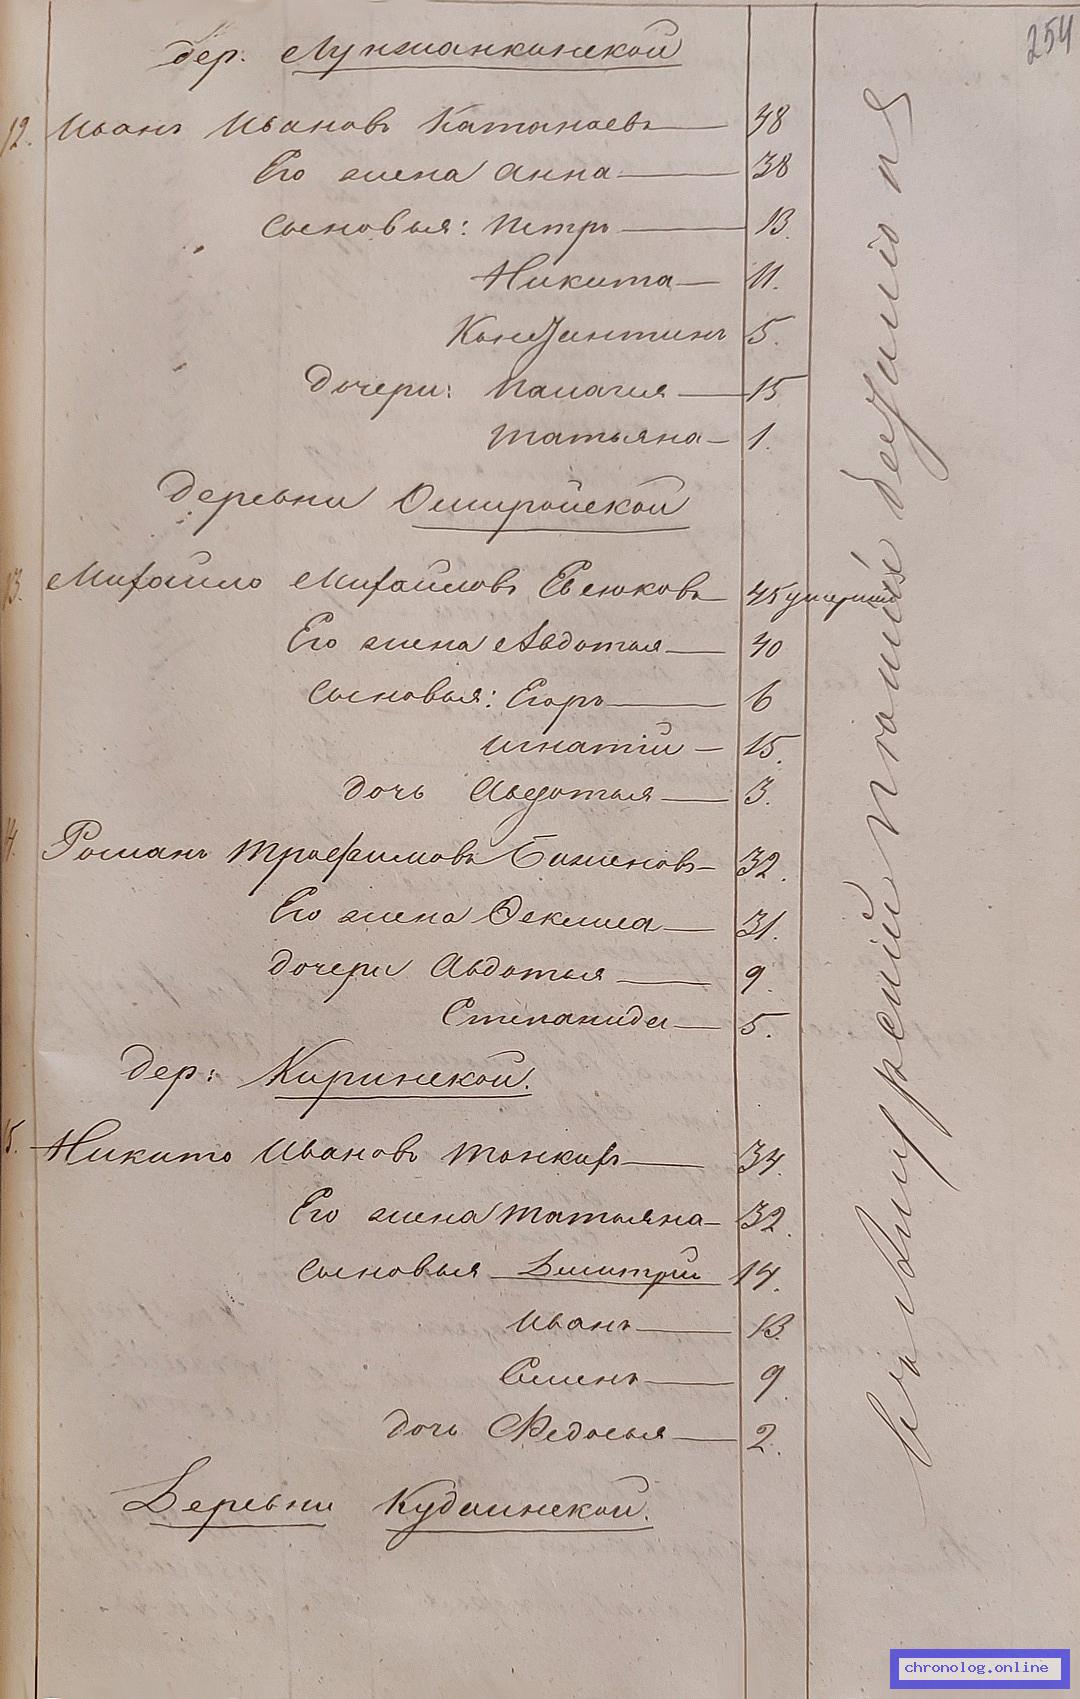 254
дер. Лунжанкинской
12. Иванъ Ивановъ Катанаевъ 48
Его жена Анна 38
Сыновья: Петръ 13.
Никита 11.
Констянтинъ 5.
Дочери: Палагия 15
Татьяна 1.
Деревни
13. Михайло Михайловъ Евсюковъ 45 умершій
Его жена Авдотья 40
Сыновья: Егоръ 6
Игнатій 15.
дочь Авдотья 3.
14. Романъ Трофимовъ Баженовъ 32.
Его жена Фекліа 31.
дочери Авдотья 9.
Степанида 5.
Дер: Киринской.
15. Никито Ивановъ Тонкихъ 34.
Его жена Татьяна 32.
сыновья Дмитрій 14.
Иванъ 13.
Семенъ 9.
дочь Федосья 2.
Деревни Кудеинской.
chronolog.online